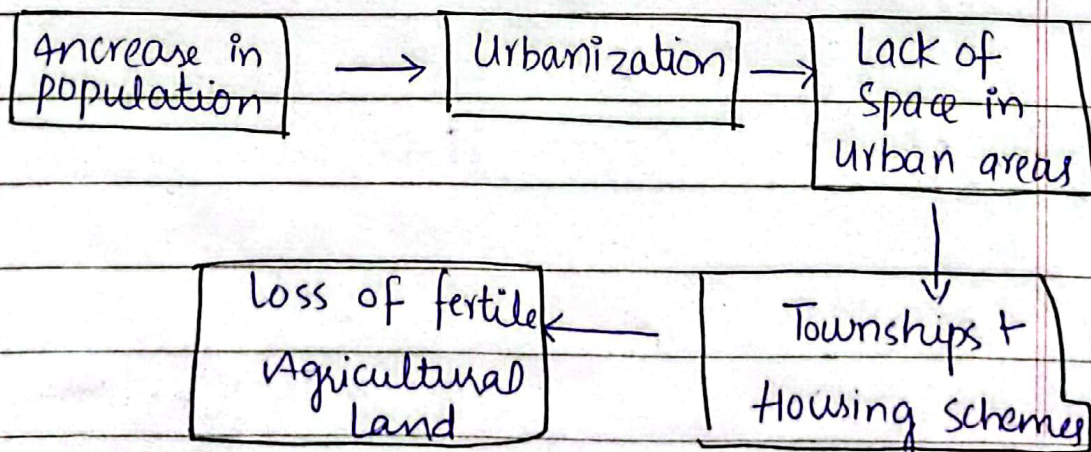 Increase in
population
Urbanization
Lack of
Space in
Urban areas
Townships +
Housing schemes
Loss of fertile
Agricultural
Land